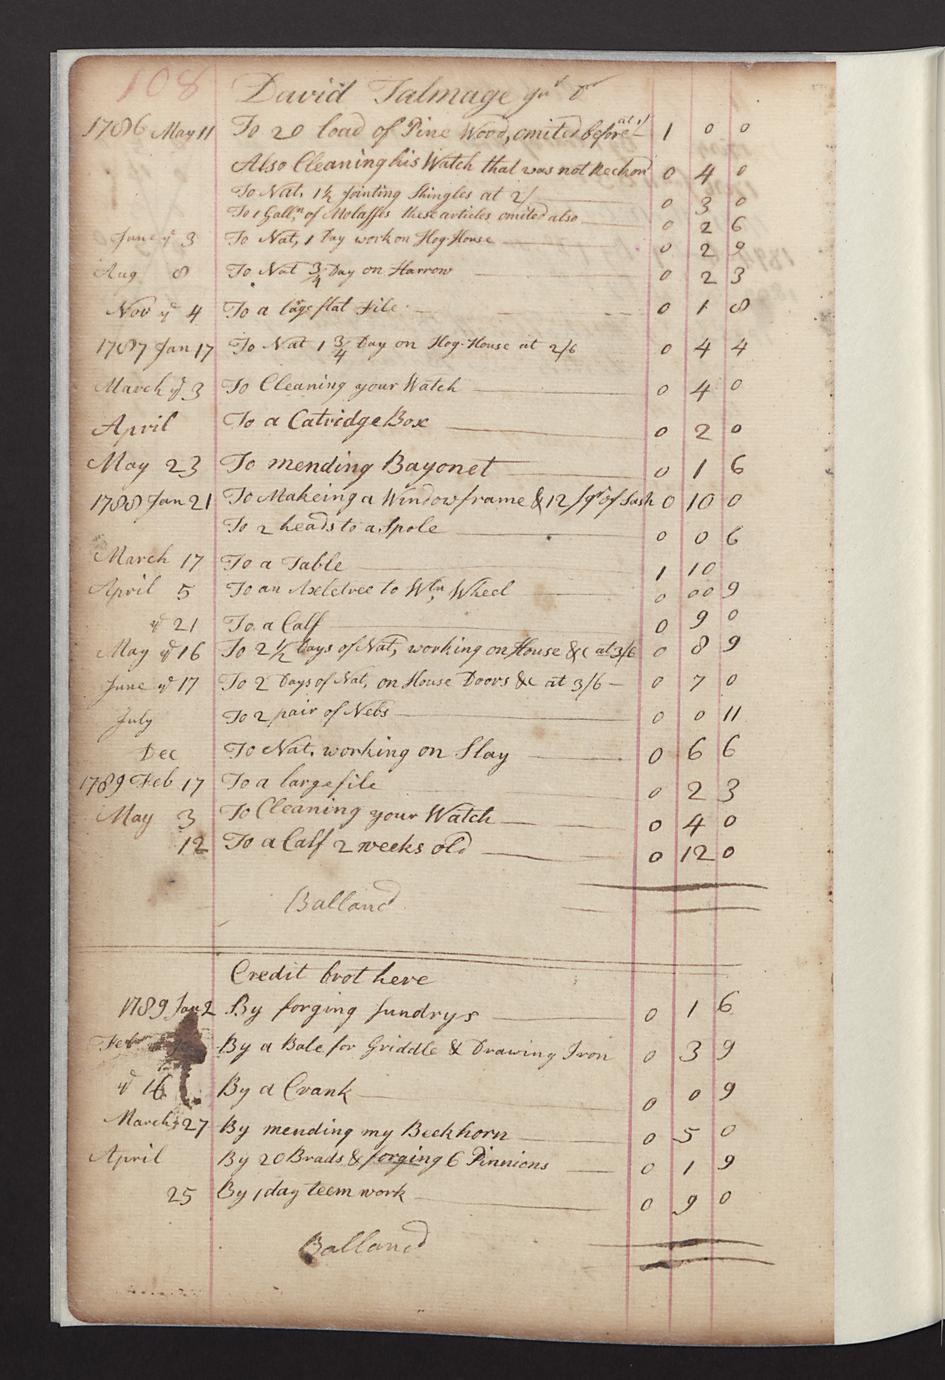 108 David Talmage Jur Dr
1786 May 11 To 20 load of Pine Wood, omited before at 1/ 1 0 0
Also Cleaning his Watch that was not Reckond 0 4 0
To Nat, 1 1/2 Jointing Shingles at 2/ 0 3 0
To 1 Galln of Molasses these articles omited also 0 2 6
June ye 3 To Nat, 1 Day work on Hog-House 0 2 9
Aug 8 To Nat 3/4 Day on Harrow 0 2 3
Nov ye 4 To a large flat File 0 1 8
1787 Jan 17 To Nat 1 3/4 Day on Hog-House at 2/6 0 4 4
March ye 3 To Cleaning your Watch 0 4 0
April To a Catridge Box 0 2 0
May 23 To mending Bayonet 0 1 6
1788 Jan 21 To Makeing a Window frame & 12 sqrs of Sash 0 10 0
To 2 heads to a Spole 0 0 6
March 17 To a Table 1 10
April 5 To an Axletree to Wln Wheel 0 00 9
ye 21 To a Calf 0 9 0
May ye 16 To 2 1/2 Days of Nat, working on House &c at 3/6 0 8 9
June ye 17 To 2 Days of Nat, on House Doors &c at 3/6 0 7 0
July To 2 pair of Nebs 0 0 11
Dec To Nat. working on Slay 0 6 6
1789 Feb 17 To a large file 0 2 3
May 3 To Cleaning your Watch 0 4 0
12 To a Calf 2 weeks old 0 12 0
Balland
Credit brot here
1789 Jan 2 By forging sundrys 0 1 6
Feb By a Bale for Griddle & Drawing Iron 0 3 9
ye 16 By a Crank 0 0 9
March ye 27 By mending my Beckhorn 0 5 0
April By 20 Brads & forging 6 Pinnions 0 1 9
25 By 1 day teem work 0 9 0
Balland